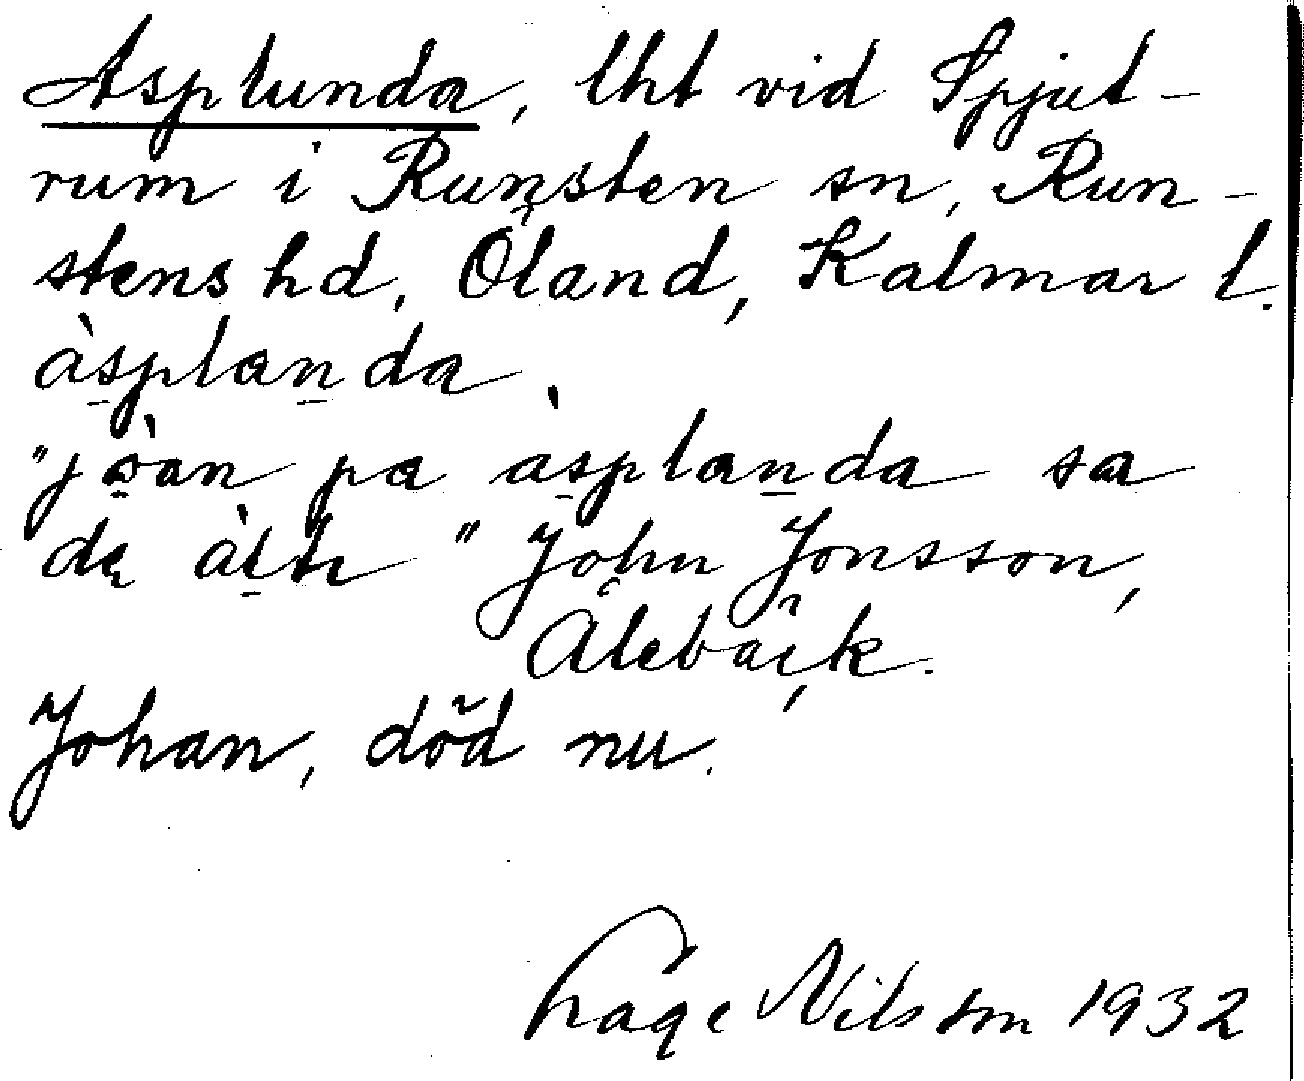 Asplunda, lht vid Spjut-
rum i Runsten sn, Run-
stens hd, Öland, Kalmar l.
àsplanda
"jòan pa àsplanda sa
de "John Jonsson,
Ålebäck.
Johan, död nu.
Nilsson 1932